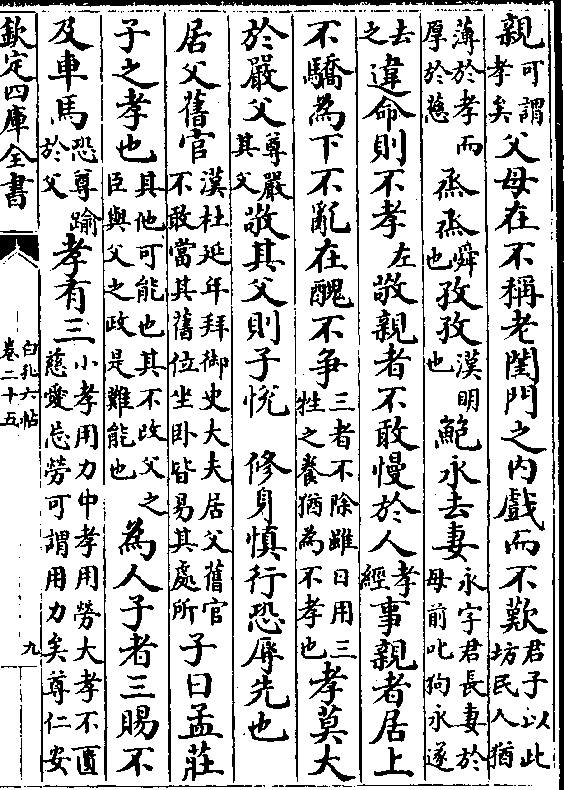 親可謂孝矣父母在不稱老閨門之內戲而不歎君子以此坊民人猶
薄於孝而厚於慈烝烝舜也孜孜漢明也鮑永去妻永字君長妻於母前叱狗永遂
去之違命則不孝左敬親者不敢慢於人孝經事親者居上
不驕為下不亂在醜不爭三者不除雖日用三牲之養猶為不孝也孝莫大
於嚴父尊嚴其父敬其父則子悅 修身慎行恐辱先也
居父舊官漢杜延年拜御史大夫居父舊官不敢當其舊位坐卧皆易其處所子曰孟莊
子之孝也其他可能也其不改父之臣與父之政是難能也為人子者三賜不
及車馬恐尊踰於父孝有三小孝用力中孝用勞大孝不匱慈愛忘勞可謂用力矣尊仁安
欽定四庫全書
白孔六帖
卷二十五
九